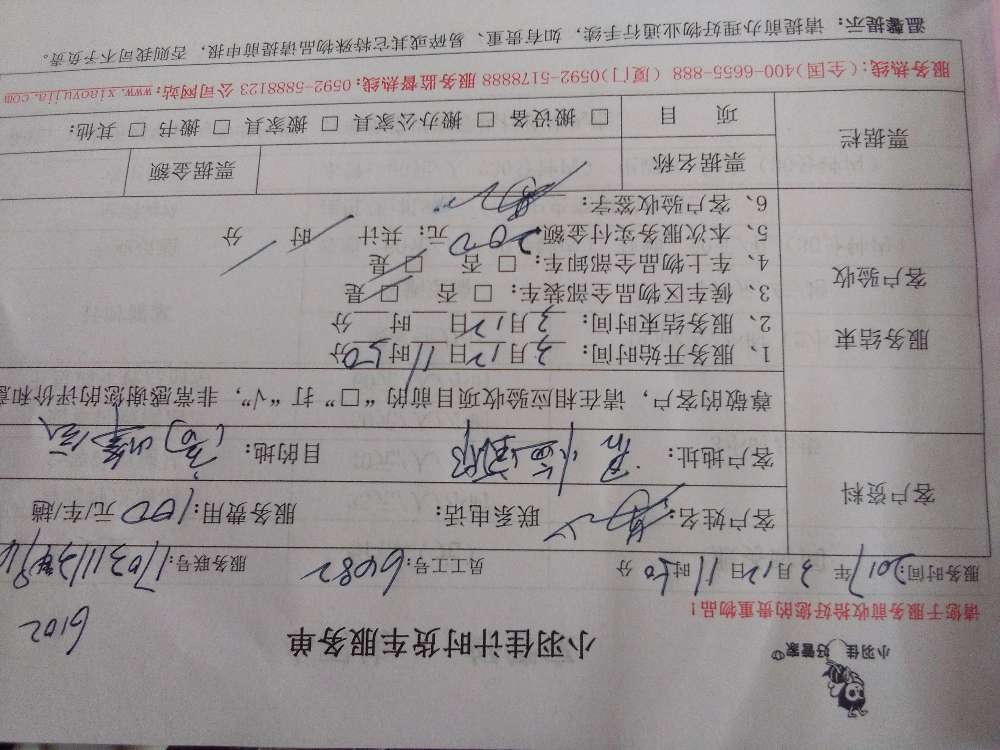 小羽佳 好管家
小羽佳计时货车服务单
6102
请您于服务前收拾好您的贵重物品!
服务时间: 2017 年 3 月 12 日 11 时 50 分 员工工号: 6082 服务联号:
客户资料
客户姓名: 联系电话: 服务费用: 100 元/车/趟
客户地址: 目的地:
尊敬的客户，请在相应验收项目前的“□”打“√”，非常感谢您的评价和意
服务结束
客户验收
1、服务开始时间: 3 月 12 日 11 时 50 分
2、服务结束时间: 3 月 12 日 时 分
3、候车区物品全部装车: □ 否 □ 是
4、车上物品全部卸车: □ 否 □ 是
5、本次服务实付金额: 200 元; 共计 时 分
6、客户验收签字:
票据栏
票据名称 票据金额
项 目 □ 搬设备 □ 搬办公家具 □ 搬家具 □ 搬书 □ 其他:
服务热线:(全国)400-6655-888 (厦门)0592-5178888 服务监督热线:0592-5888123 公司网站:www.xiaoyujia.com
温馨提示: 请提前办理好物业通行手续，如有贵重、易碎或其它特殊物品请提前申报，否则我司不予负责。